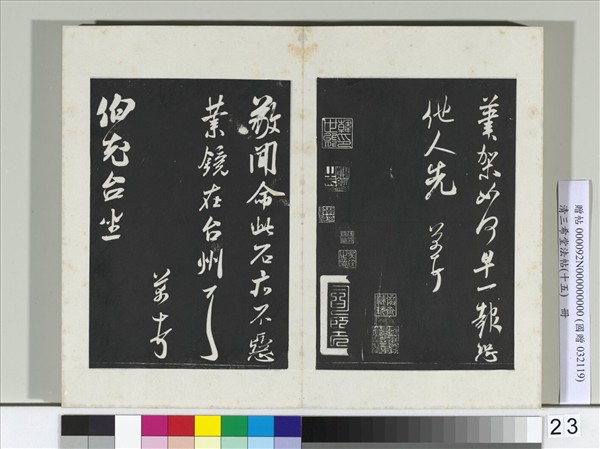 筆架如何早一報恐
他人先 芾頓首
敬聞命此石亦不惡
業鏡在台州耳
芾頓首
伯充台坐
贈帖 000092N000000000 (國贈 032119)
清三希堂法帖(十五) 冊
23